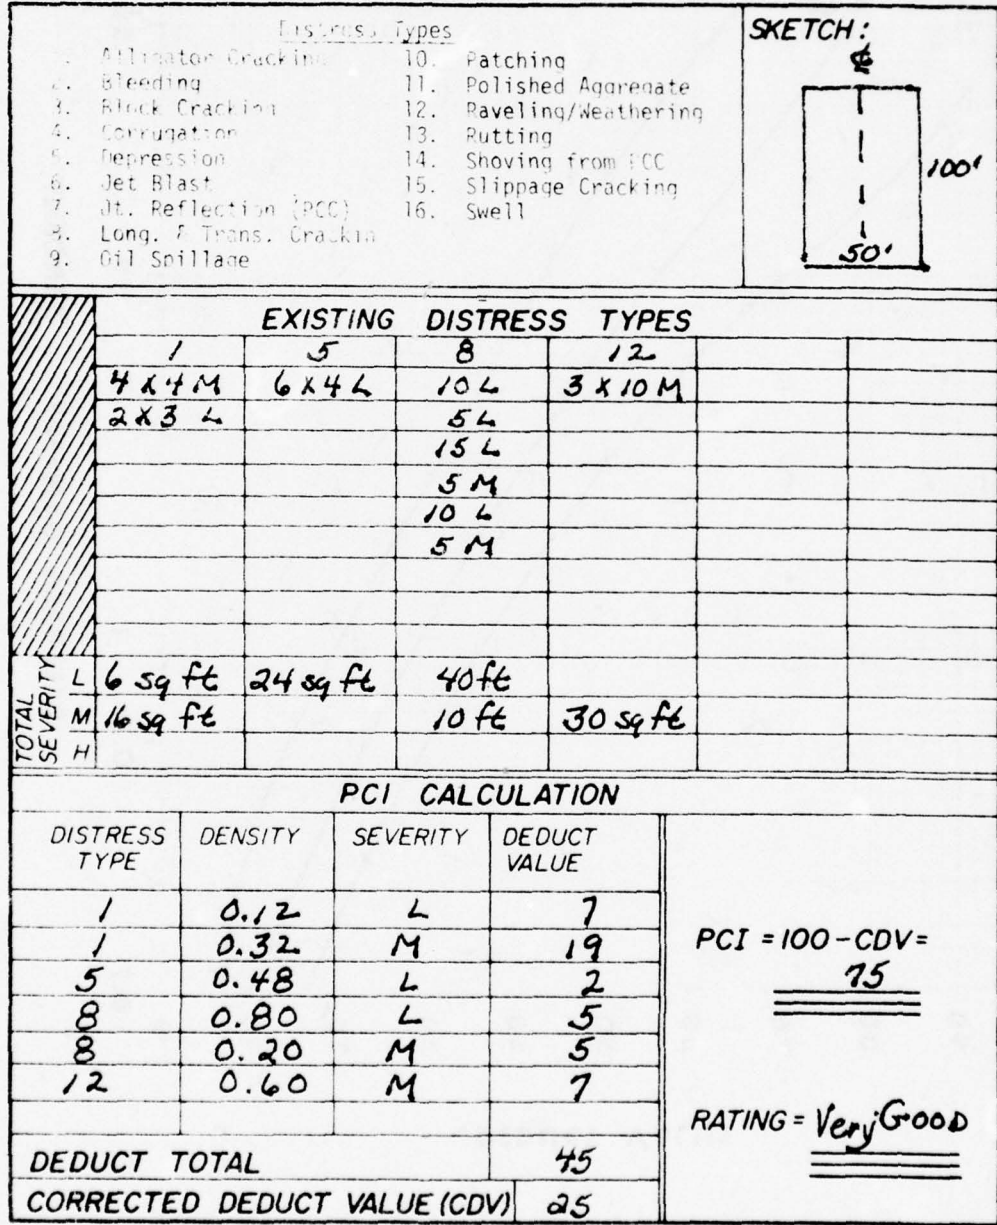 Distress Types
1. Alligator Cracking
2. Bleeding
3. Block Cracking
4. Corrugation
5. Depression
6. Jet Blast
7. Jt. Reflection (PCC)
8. Long. & Trans. Crackin
9. Oil Spillage
10. Patching
11. Polished Aggregate
12. Raveling/Weathering
13. Rutting
14. Shoving from PCC
15. Slippage Cracking
16. Swell
SKETCH:
℄
100'
50'
EXISTING DISTRESS TYPES
1 5 8 12
4 x 4 M 6 x 4 L 10 L 3 x 10 M
2 x 3 L 5 L
15 L
5 M
10 L
5 M
TOTAL SEVERITY
L 6 sq ft 24 sq ft 40 ft
M 16 sq ft 10 ft 30 sq ft
H
PCI CALCULATION
DISTRESS TYPE DENSITY SEVERITY DEDUCT VALUE
1 0.12 L 7
1 0.32 M 19
5 0.48 L 2
8 0.80 L 5
8 0.20 M 5
12 0.60 M 7
DEDUCT TOTAL 45
CORRECTED DEDUCT VALUE (CDV) 25
PCI = 100 - CDV =
75
RATING = Very GOOD